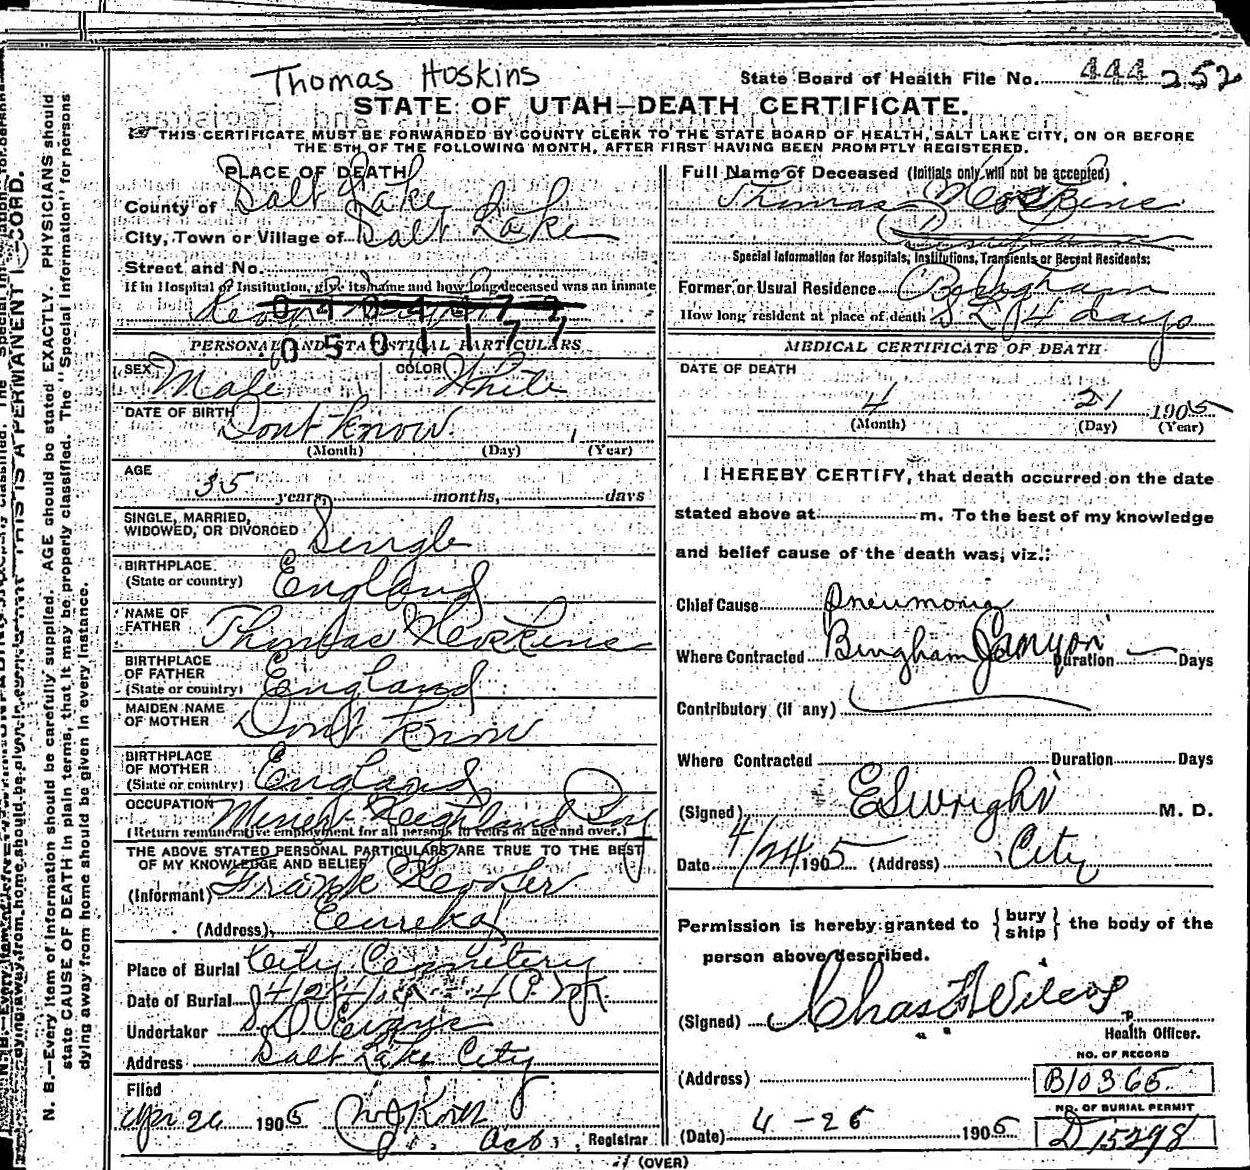 Thomas Hoskins
State Board of Health File No. 444 252
STATE OF UTAH—DEATH CERTIFICATE.
THIS CERTIFICATE MUST BE FORWARDED BY COUNTY CLERK TO THE STATE BOARD OF HEALTH, SALT LAKE CITY, ON OR BEFORE
THE 5TH OF THE FOLLOWING MONTH, AFTER FIRST HAVING BEEN PROMPTLY REGISTERED.
PLACE OF DEATH
County of Salt Lake
City, Town or Village of Salt Lake
Street and No.
If in Hospital or Institution, give its name and how long deceased was an inmate
0501177
PERSONAL AND STATISTICAL PARTICULARS
SEX Male COLOR White
DATE OF BIRTH Dont Know
(Month) (Day) (Year)
AGE
35 years, months, days
SINGLE, MARRIED,
WIDOWED, OR DIVORCED Single
BIRTHPLACE
(State or country) England
NAME OF
FATHER Thomas Hoskins
BIRTHPLACE
OF FATHER
(State or country) England
MAIDEN NAME
OF MOTHER Dont Know
BIRTHPLACE
OF MOTHER
(State or country) England
OCCUPATION Miner Highland Boy
(Return remunerative employment for all persons 10 years of age and over.)
THE ABOVE STATED PERSONAL PARTICULARS ARE TRUE TO THE BEST
OF MY KNOWLEDGE AND BELIEF
(Informant) Frank
(Address) Eureka
Place of Burial City Cemetery
Date of Burial
Undertaker
Address Salt Lake City
Filed
Apr 26 1905
Registrar
Full Name of Deceased (Initials only will not be accepted)
Thomas Hoskins
Special Information for Hospitals, Institutions, Transients or Recent Residents:
Former or Usual Residence Bingham
How long resident at place of death S L 4 days
MEDICAL CERTIFICATE OF DEATH
DATE OF DEATH
4 21 1905
(Month) (Day) (Year)
I HEREBY CERTIFY, that death occurred on the date
stated above at m. To the best of my knowledge
and belief cause of the death was, viz.:
Chief Cause Pneumonia
Where Contracted Bingham Canyon Duration Days
Contributory (if any)
Where Contracted Duration Days
(Signed) E S Wright M. D.
Date 4/24 1905 (Address) City
Permission is hereby granted to {bury ship} the body of the
person above described.
(Signed) Chas Wilcox
Health Officer.
NO. OF RECORD
(Address) B10365
NO. OF BURIAL PERMIT
(Date) 4-26 1905 D15298
(OVER)
N. B.—Every item of information should be carefully supplied. AGE should be stated EXACTLY. PHYSICIANS should
state CAUSE OF DEATH in plain terms, that it may be properly classified. The "Special Information" for persons
dying away from home should be given in every instance.